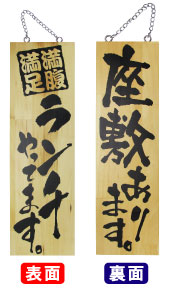 満腹
満足
ランチ
やってます。
座敷
あり
ます。
表面
裏面